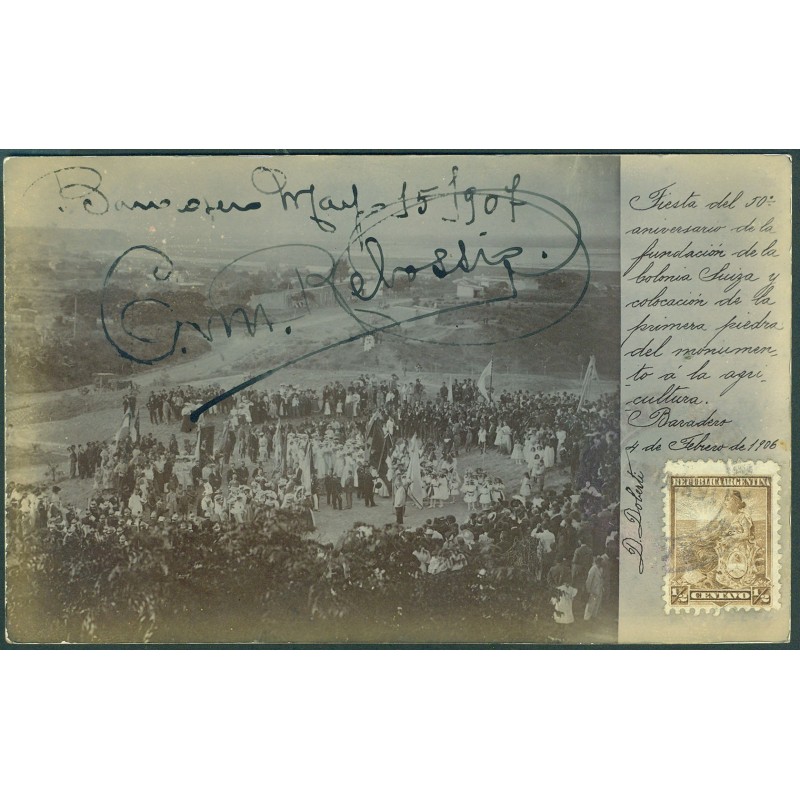 Baradero May-15 1907
E. M. Rebossio.
Fiesta del 50º
aniversario de la
fundación de la
bolonia Suiza y
colocación de la
primera piedra
del monumen-
to á la agri-
cultura.
Baradero
4 de Febrero de 1906
D. Doberti
REPUBLICA ARGENTINA
½ CENTAVO ½